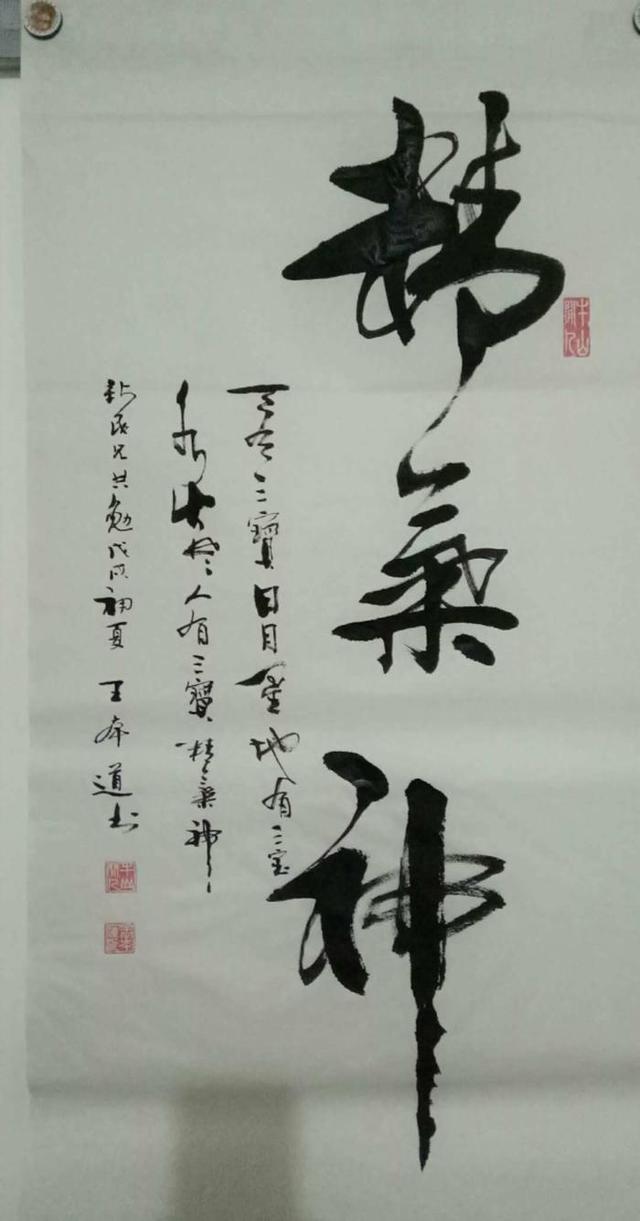 精氣神
天有三寶日月星地有三宝
水火風人有三寶精氣神
兄共勉戊戌初夏 王本道书